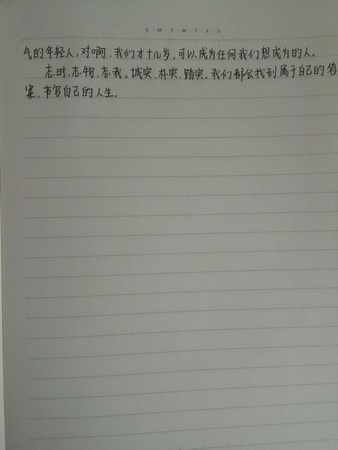 S M T W T F S
气的年轻人,对啊,我们才十几岁,可以成为任何我们想成为的人。
忘时,忘物,忘我。诚实,朴实,踏实。我们都会找到属于自己的答
案,书写自己的人生。